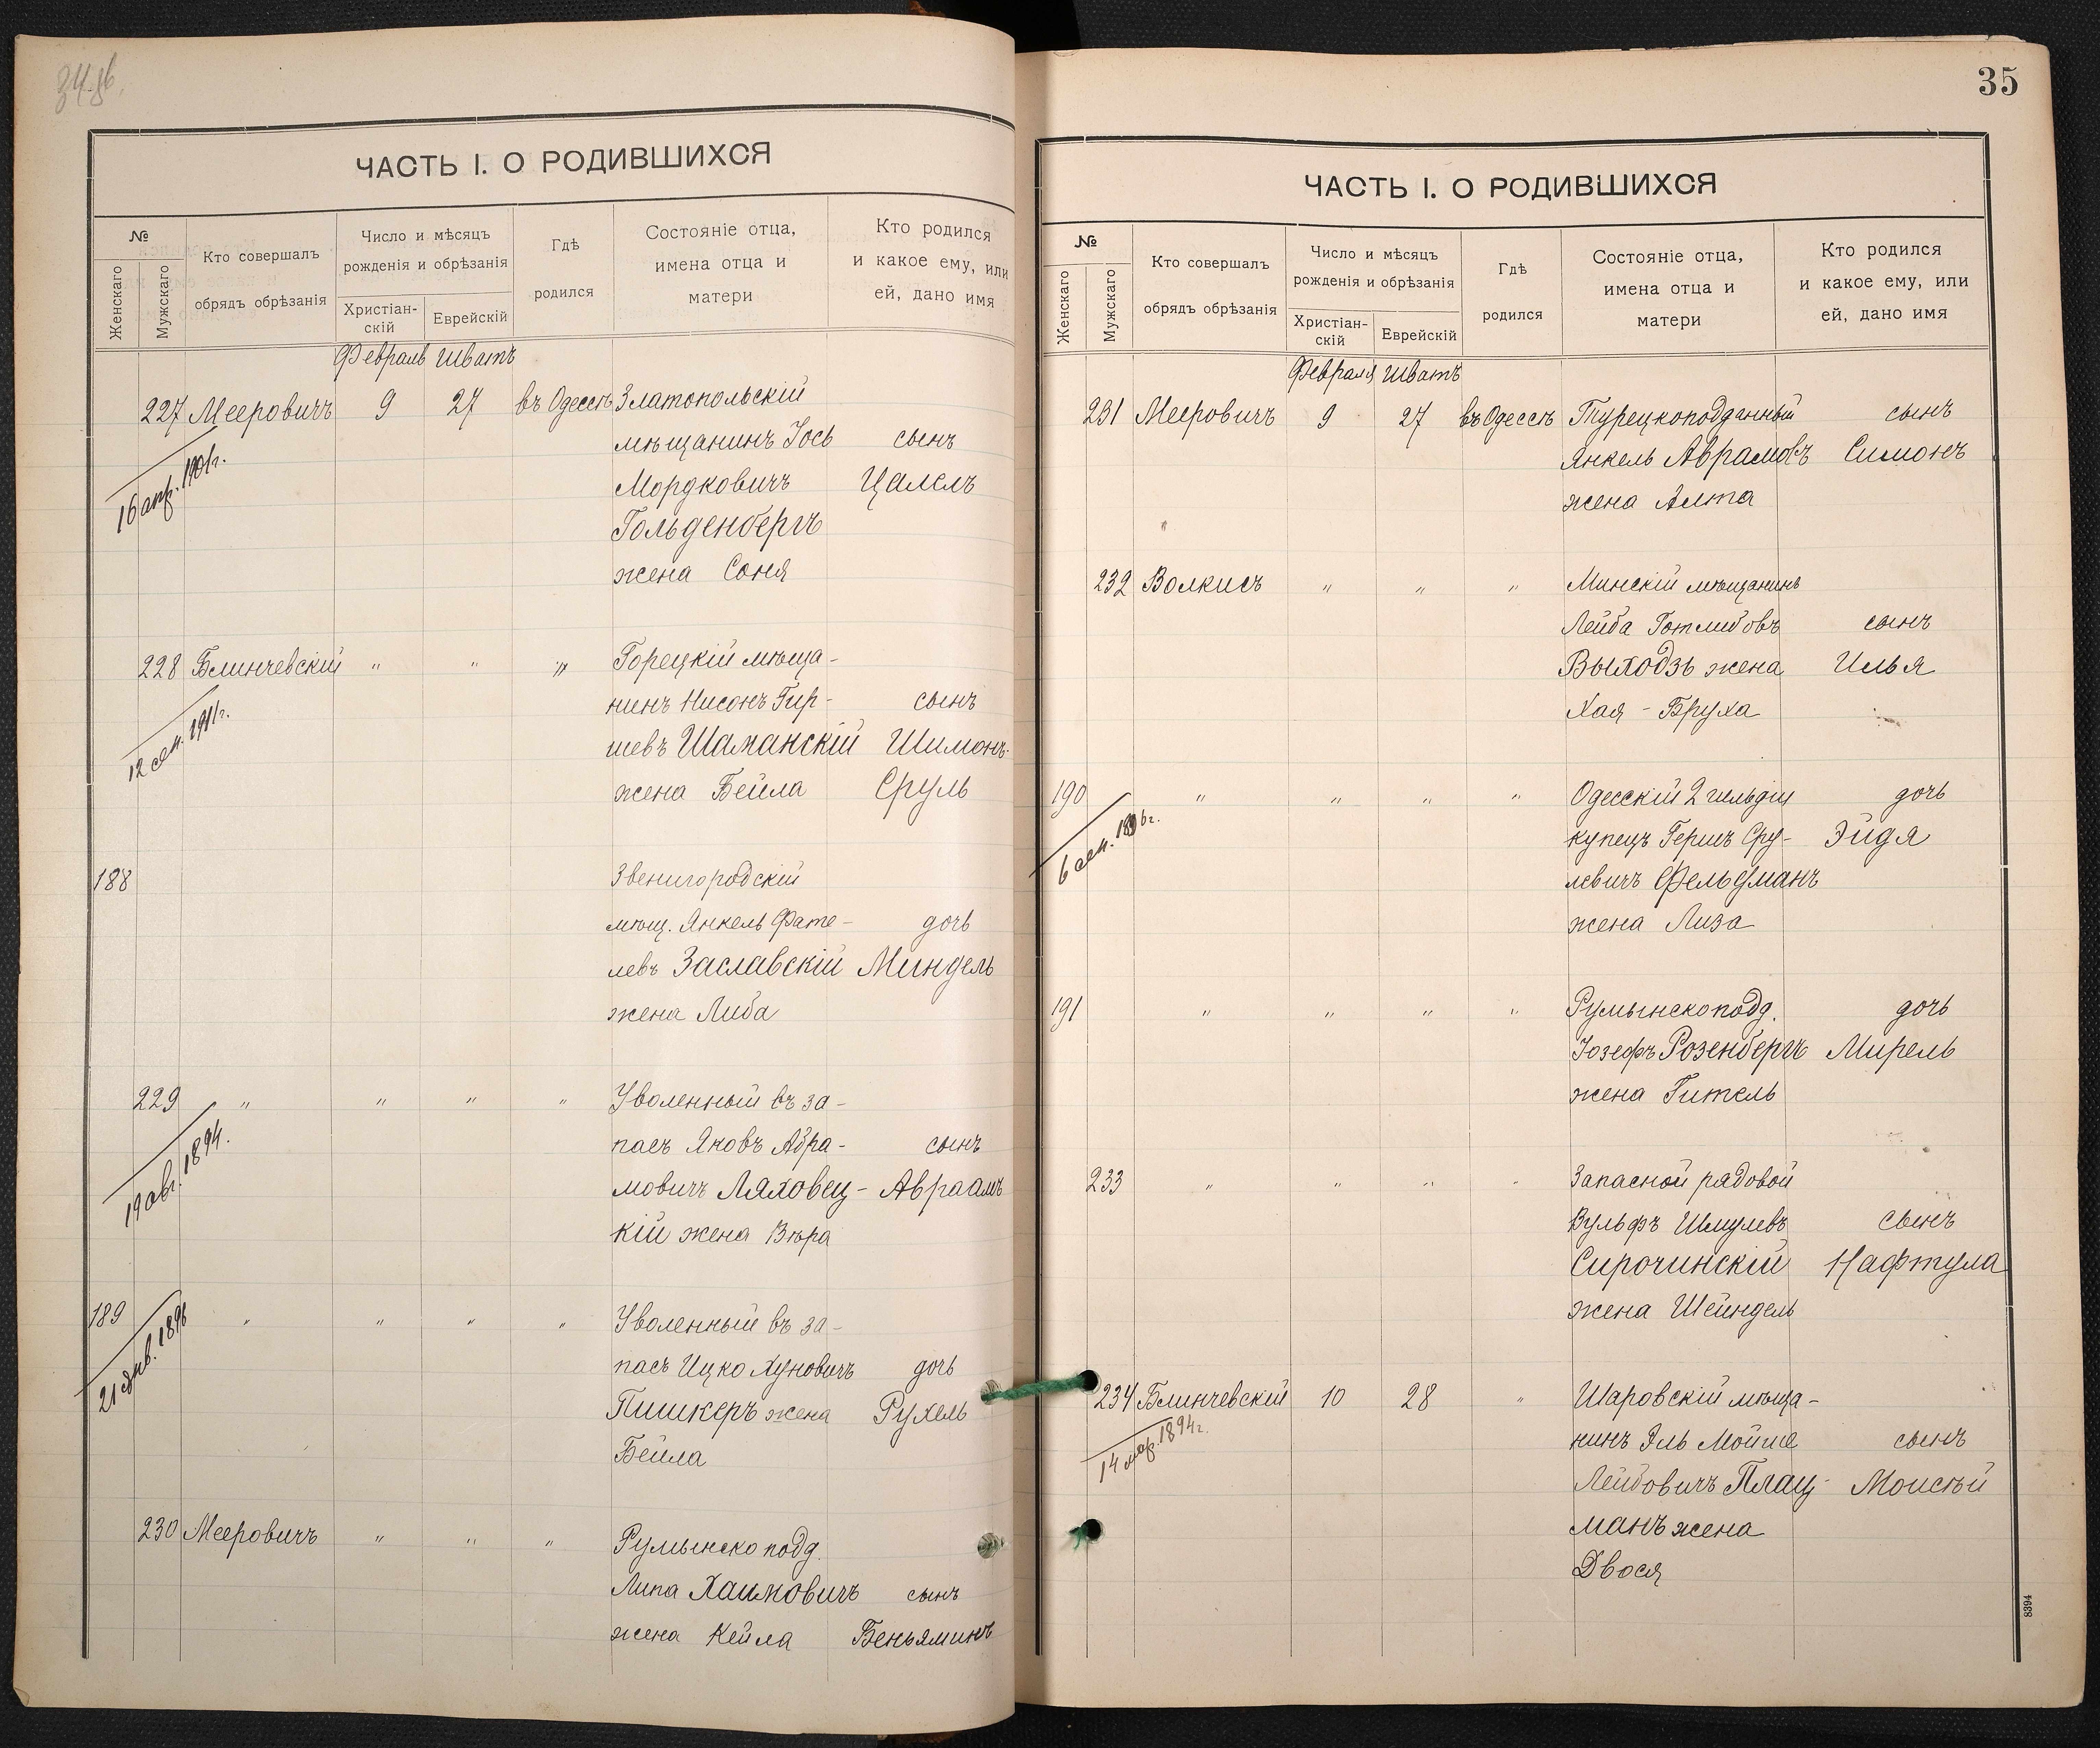 34 об.
ЧАСТЬ I. О РОДИВШИХСЯ
№
Женскаго
Мужскаго
Кто совершалъ
обрядъ обрѣзанія
Число и мѣсяцъ
рожденія и обрѣзанія
Христіан-
скій
Еврейскій
Гдѣ
родился
Состояніе отца,
имена отца и
матери
Кто родился
и какое ему, или
ей, дано имя
Февраль Шватъ
227 Мееровичъ 9 27 въ Одессѣ Златопольскій
мѣщанинъ Іось сынъ
Мордковичъ Цалель
Гольденбергъ
жена Соня
16 апр. 1901 г.
228 Блинчевскій " " " Горецкій мѣща-
нинъ Нисонъ Гир- сынъ
шевъ Шаманскій Шимонъ-
жена Бейла Сруль
12 сен. 1911 г.
188 Звенигородскій
мѣщ. Янкель Фате- дочь
левъ Заславскій Миндель
жена Либа
229 " " " " Уволенный въ за-
пасъ Яковъ Абра- сынъ
мовичъ Ляховец- Авраамъ
кій жена Вѣра
19 авг. 1894.
189 " " " " Уволенный въ за-
пасъ Ицко Хуновичъ дочь
Пишкеръ жена Рухель
Бейла
21 янв. 1896
230 Мееровичъ " " " Румынскоподд.
Липа Хаимовичъ сынъ
жена Кейла Беньяминъ
35
ЧАСТЬ I. О РОДИВШИХСЯ
№
Женскаго
Мужскаго
Кто совершалъ
обрядъ обрѣзанія
Число и мѣсяцъ
рожденія и обрѣзанія
Христіан-
скій
Еврейскій
Гдѣ
родился
Состояніе отца,
имена отца и
матери
Кто родился
и какое ему, или
ей, дано имя
Февраля Шватъ
231 Мееровичъ 9 27 въ Одессѣ Турецкоподданный сынъ
Янкель Аврамовъ Симонъ
жена Алта
232 Волкисъ " " " Минскій мѣщанинъ
Лейба Готлибовъ сынъ
Выходзъ жена Илья
Хая - Бруха
190 " " " " Одесскій 2 гильдіи дочь
купецъ Гершъ Сру- Эйдя
левичъ Фельдманъ
жена Лиза
6 сен. 1896 г.
191 " " " " Румынскоподд. дочь
Іозефъ Розенбергъ Мирель
жена Гитель
233 " " " " Запасной рядовой
Вульфъ Шмулевъ сынъ
Сирочинскій Нафтула
жена Шейндель
234 Блинчевскій 10 28 " Шаровскій мѣща-
нинъ Эль Мойше сынъ
Лейбовичъ Плац- Моисѣй
манъ жена
Двося
14 мар. 1894 г.
8394